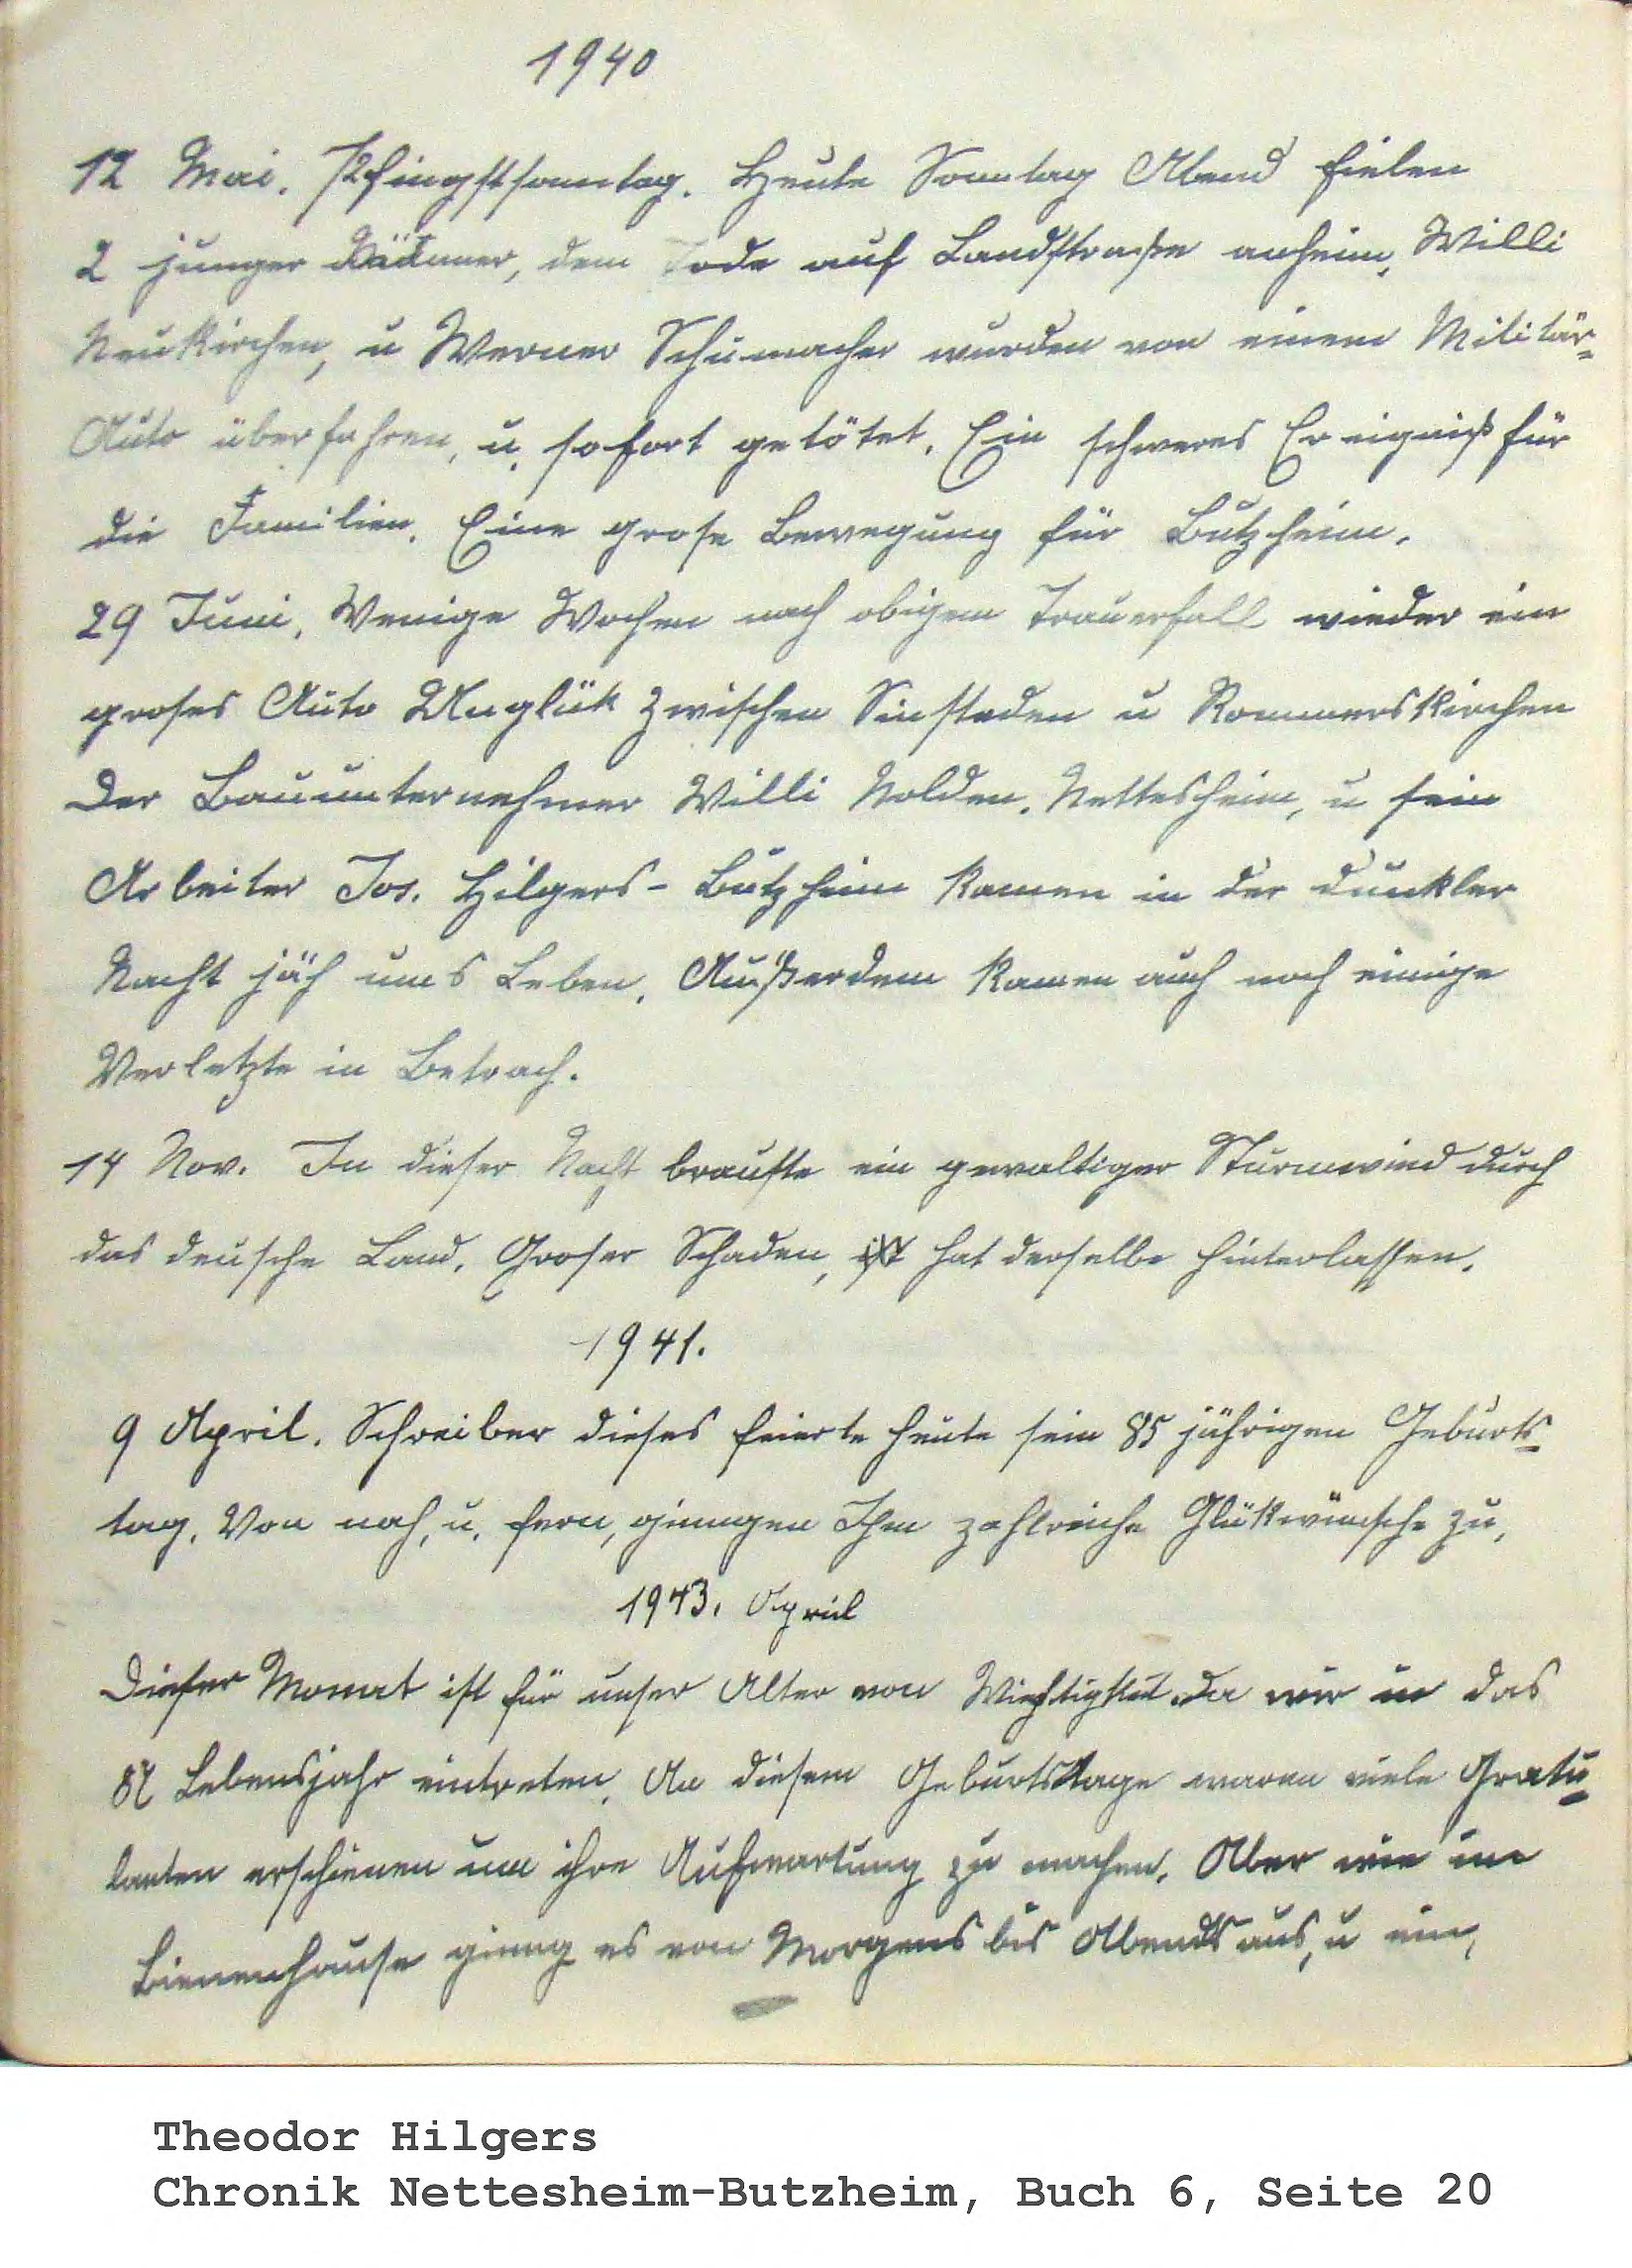 1940
12 Mai. Pfingstsonntag. Heute Sonntag Abend fielen
2 junger Männer, dem Tode auf Landstraße anheim, Willi
Neukirchen, u Werner Schumacher wurden von einem Militär-
Auto überfahren, u. sofort getötet. Ein schweres Ereigniß für
die Familien. Eine grose Bewegung für Butzheim.
29 Juni. Wenige Wochen nach obigem Trauerfall wieder ein
groses Auto Unglük zwischen Sinsteden u Rommerskirchen
Der Bauunternehmer Willi Nolden. Nettesheim, u sein
Arbeiter Jos. Hilgers- Butzheim kamen in der dunkler
Nacht jäh ums Leben. Außerdem kamen auch noch einige
Verletzte in Betrach.
14 Nov. In dieser Nacht brauste ein gewaltiger Sturmwind durch
das deusche Land. Groser Schaden, ist hat derselbe hinterlassen.
1941.
9 April. Schreiber dieses feierte heute sein 85 jährigen Geburts-
tag. Von nah, u. fern, gingen Ihm zahlreiche Glükwünsche zu.
1943. April
Dieser Monat ist für unser Alter von Wichtigkeit. Da wir in das
87 Lebensjahr eintreten. An diesem Geburtstage waren viele Gratu-
lanten erschienen um ihre Aufwartung zu machen. Aber wie im
Bienenhause ginng es von Morgens bis Abends aus, u ein,
Theodor Hilgers
Chronik Nettesheim-Butzheim, Buch 6, Seite 20